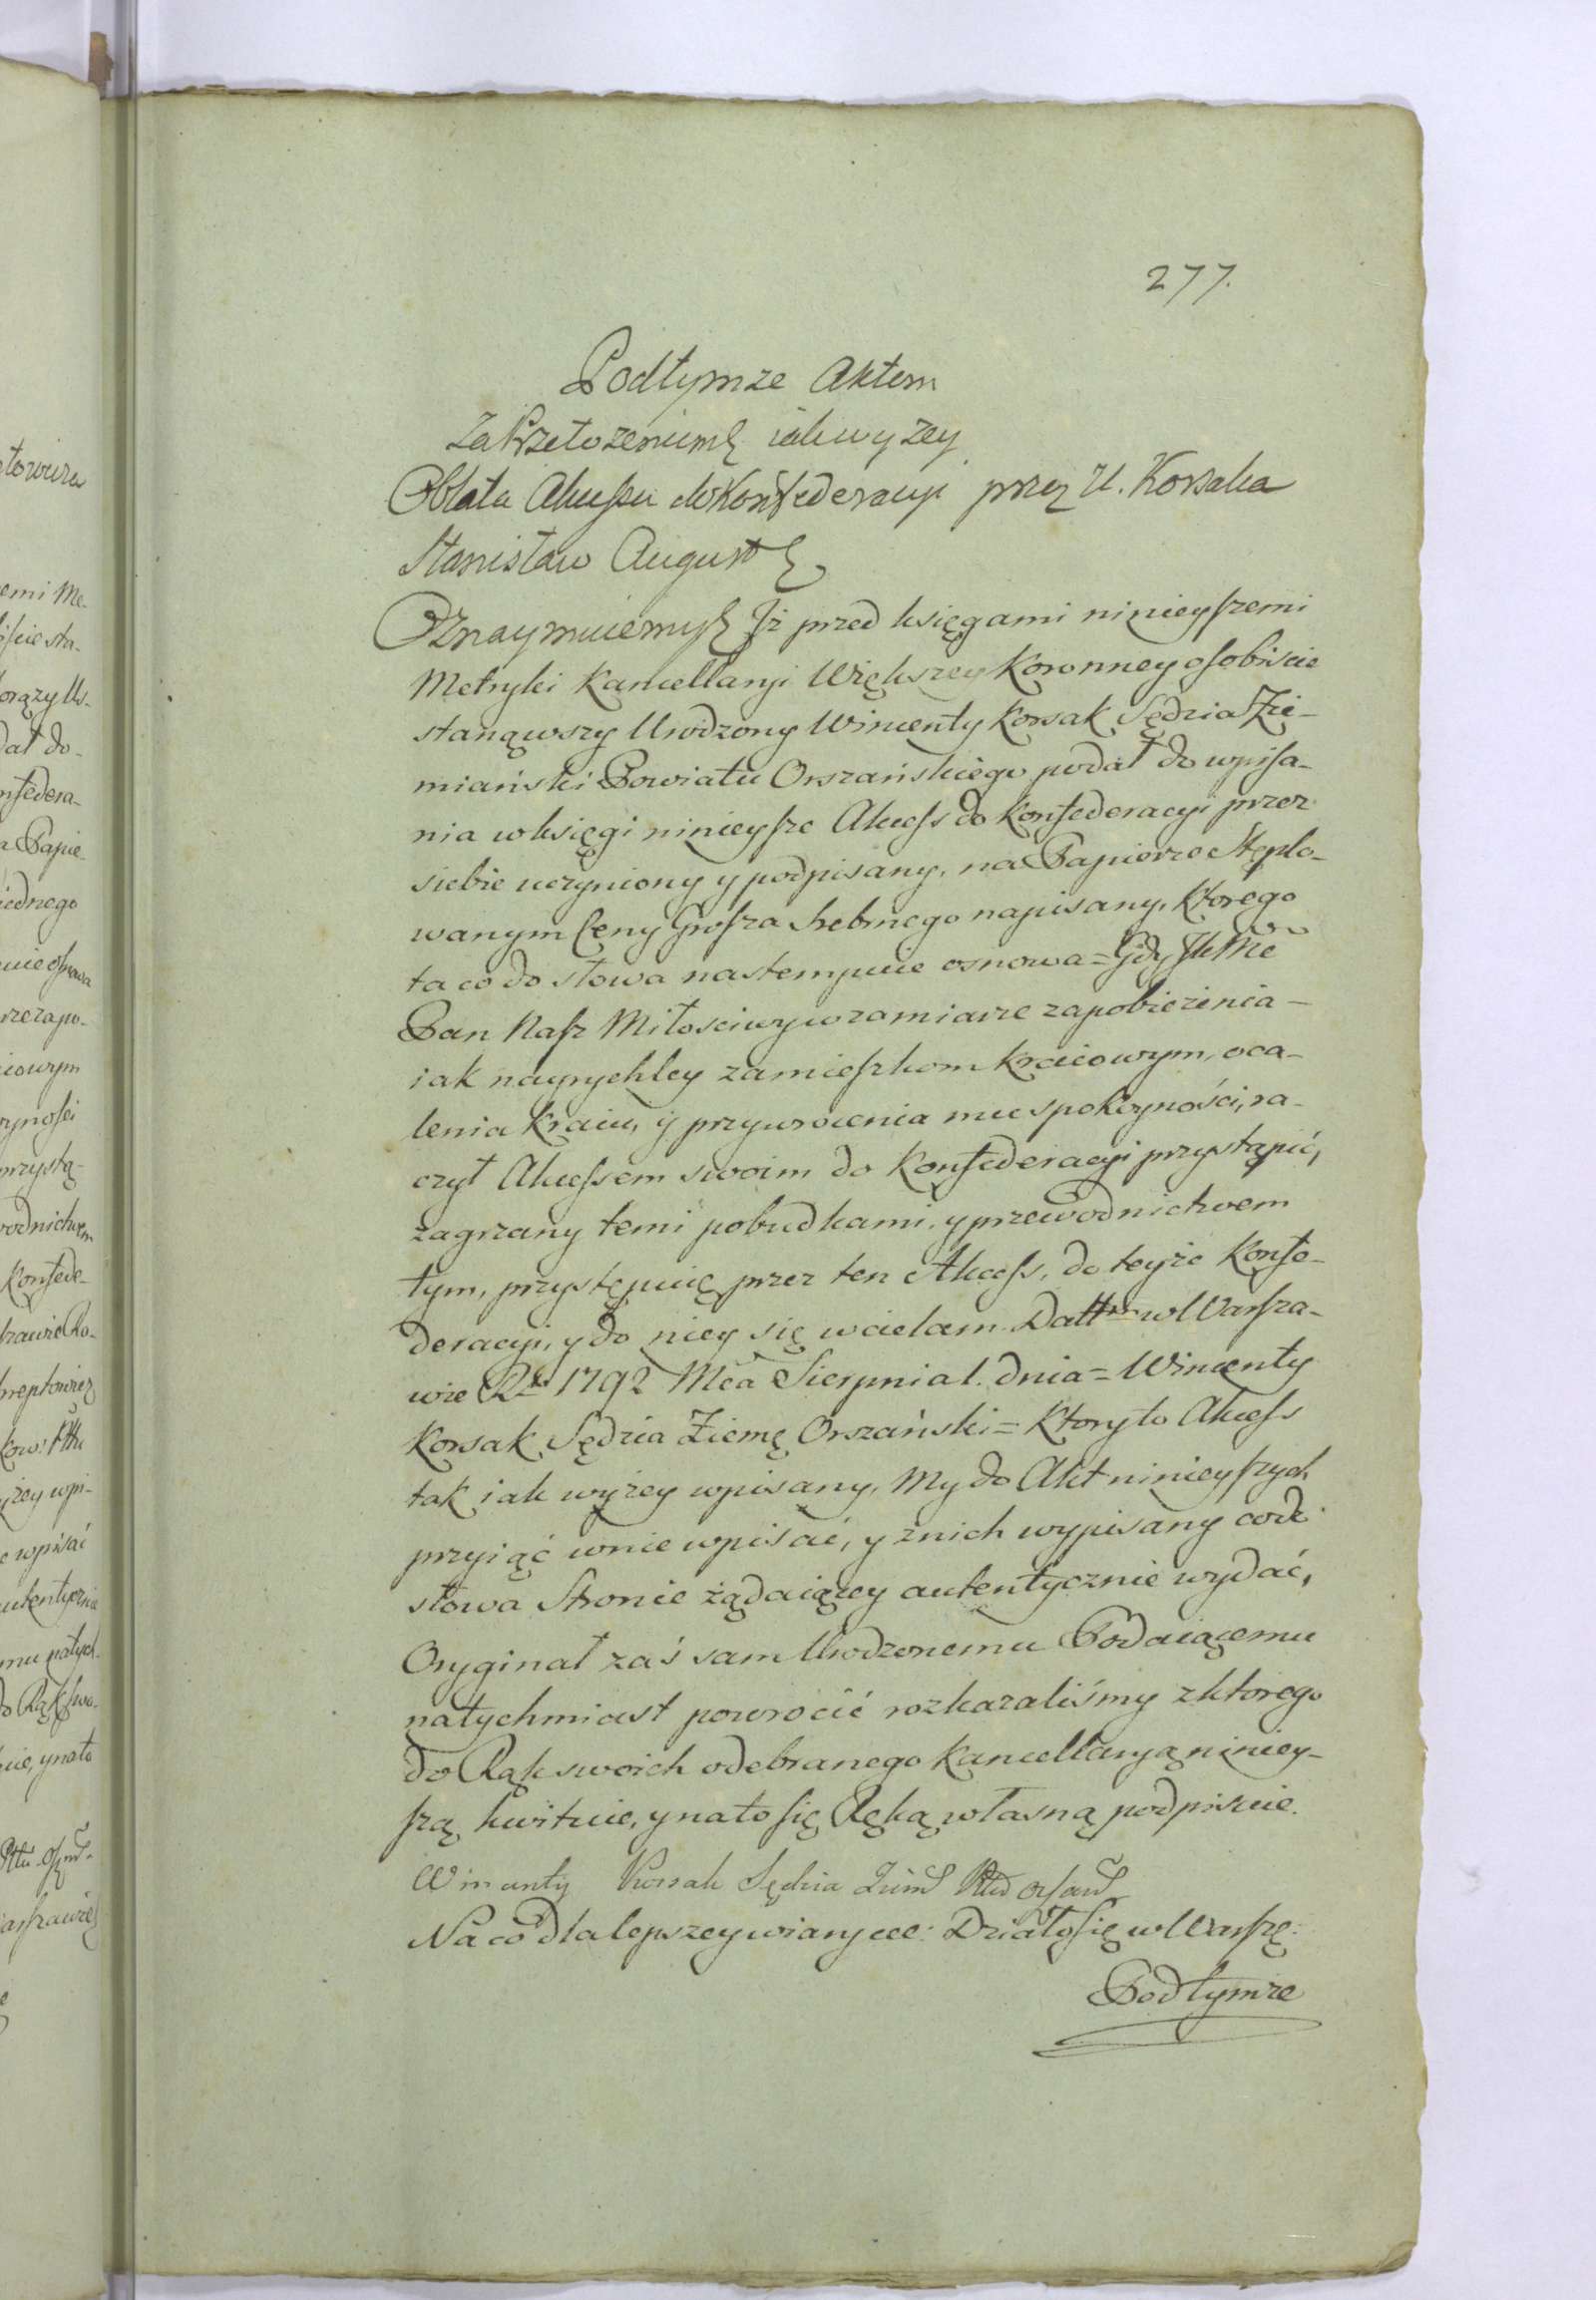 277.
Podtymze Aktem
Za Przełozeniem iak wyzey
Oblata Akcessu do Konfederacyi przez U. Korsaka
Stanisław August
Oznaymuiemy Iż przed księgami ninieyszemi
Metryki Kancellaryi Większey Koronney osobiscie
stanąwszy Urodzony Wincenty Korsak Sędzia Zie-
miański Powiatu Orszańskiego podał do wpisa-
nia w księgi ninieysze Akcess do Konfederacyi przez
siebie uczyniony y podpisany, na Papierze Stęplo-
wanym Ceny Grosza srebrnego napisany, ktorego
ta co do słowa nastempuie osnowa = Gdy JKMć
Pan Nasz Miłosciwy w zamiarze zapobieżenia -
iak nayrychley zamieszkom kraiowym, oca-
lenia Kraiu, y przywrocenia mu spokoyności, ra-
czył Akcessem swoim do Konfederacyi przystąpić,
zagrzany temi pobudkami, y przewodnictwem
tym, przystępuię przez ten Akcess, do teyże Konfe-
deracyi, y do niey się wcielam. Datt w Warsza-
wie Rku 1792 Mca Sierpnia 1. dnia = Wincenty
Korsak Sędzia Ziemę Orszański = Ktory to Akcess
tak iak wyżey wpisany, My do Akt ninieyszych
przyiąć w nie wpisać, y z nich wypisany co do
słowa Stronie żądaiącey autentycznie wydać,
Oryginał zaś sam Urodzonemu Podaiącemu
natychmiast powrocić rozkazaliśmy z ktorego
do Rąk swoich odebranego Kancellaryą niniey-
szą kwituie, y na to się Ręką własną podpisuie.
Wincenty Korsak Sędzia Ziem Pttu Orszań
Na co dla lepszey wiary ccc: Działo się w Warszę:
Podtymże